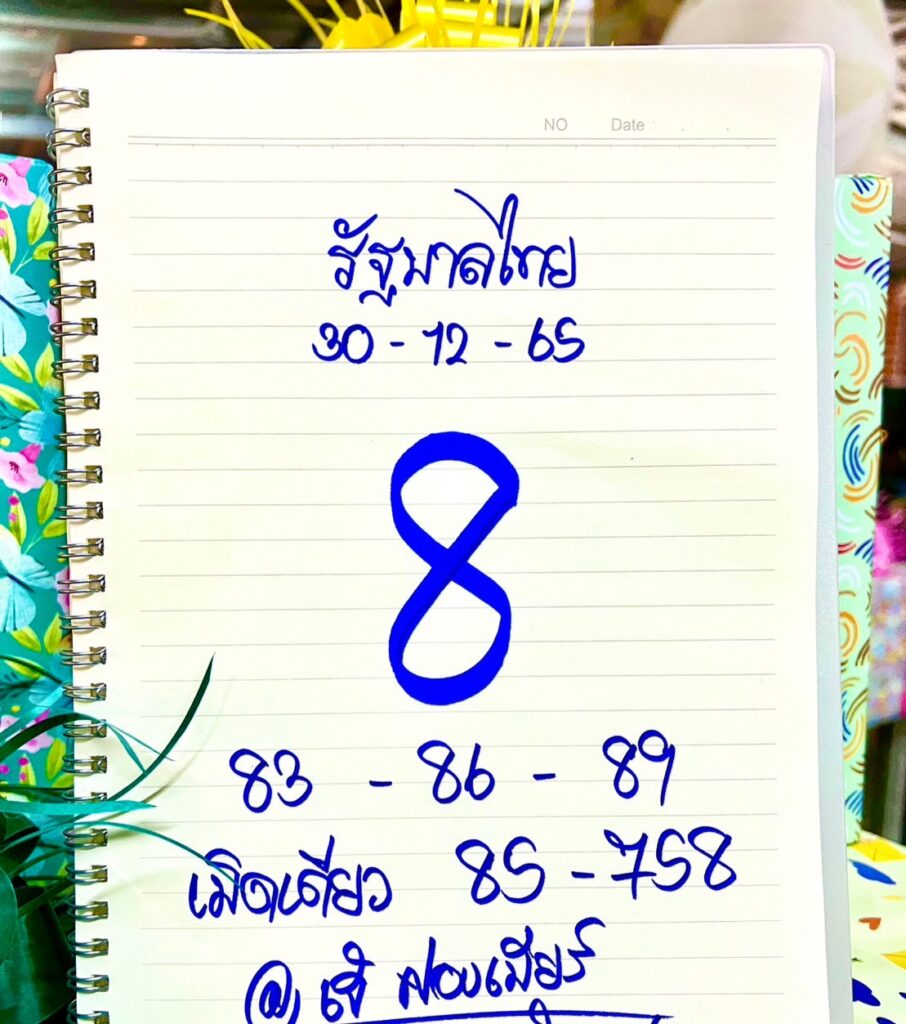 NO Date
รัฐบาลไทย
30 - 12 - 65
8
83 - 86 - 89
เม็ดเดียว 85 - 758
@ เจ๊ ฟองเบียร์